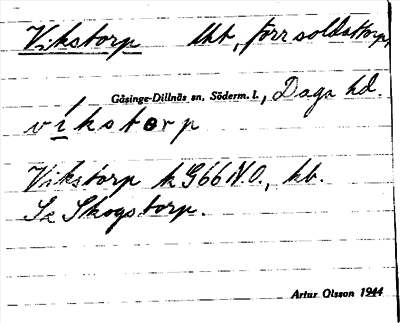 Vikstorp lht, förr soldattorp,
Gåsinge-Dillnäs sn, Söderm. l., Daga hd.
víkstorp
Vikstorp k G66 N.O., hb.
Se Skogstorp.
Artur Olsson 1944